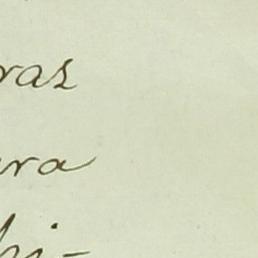 ras
ra
hi-